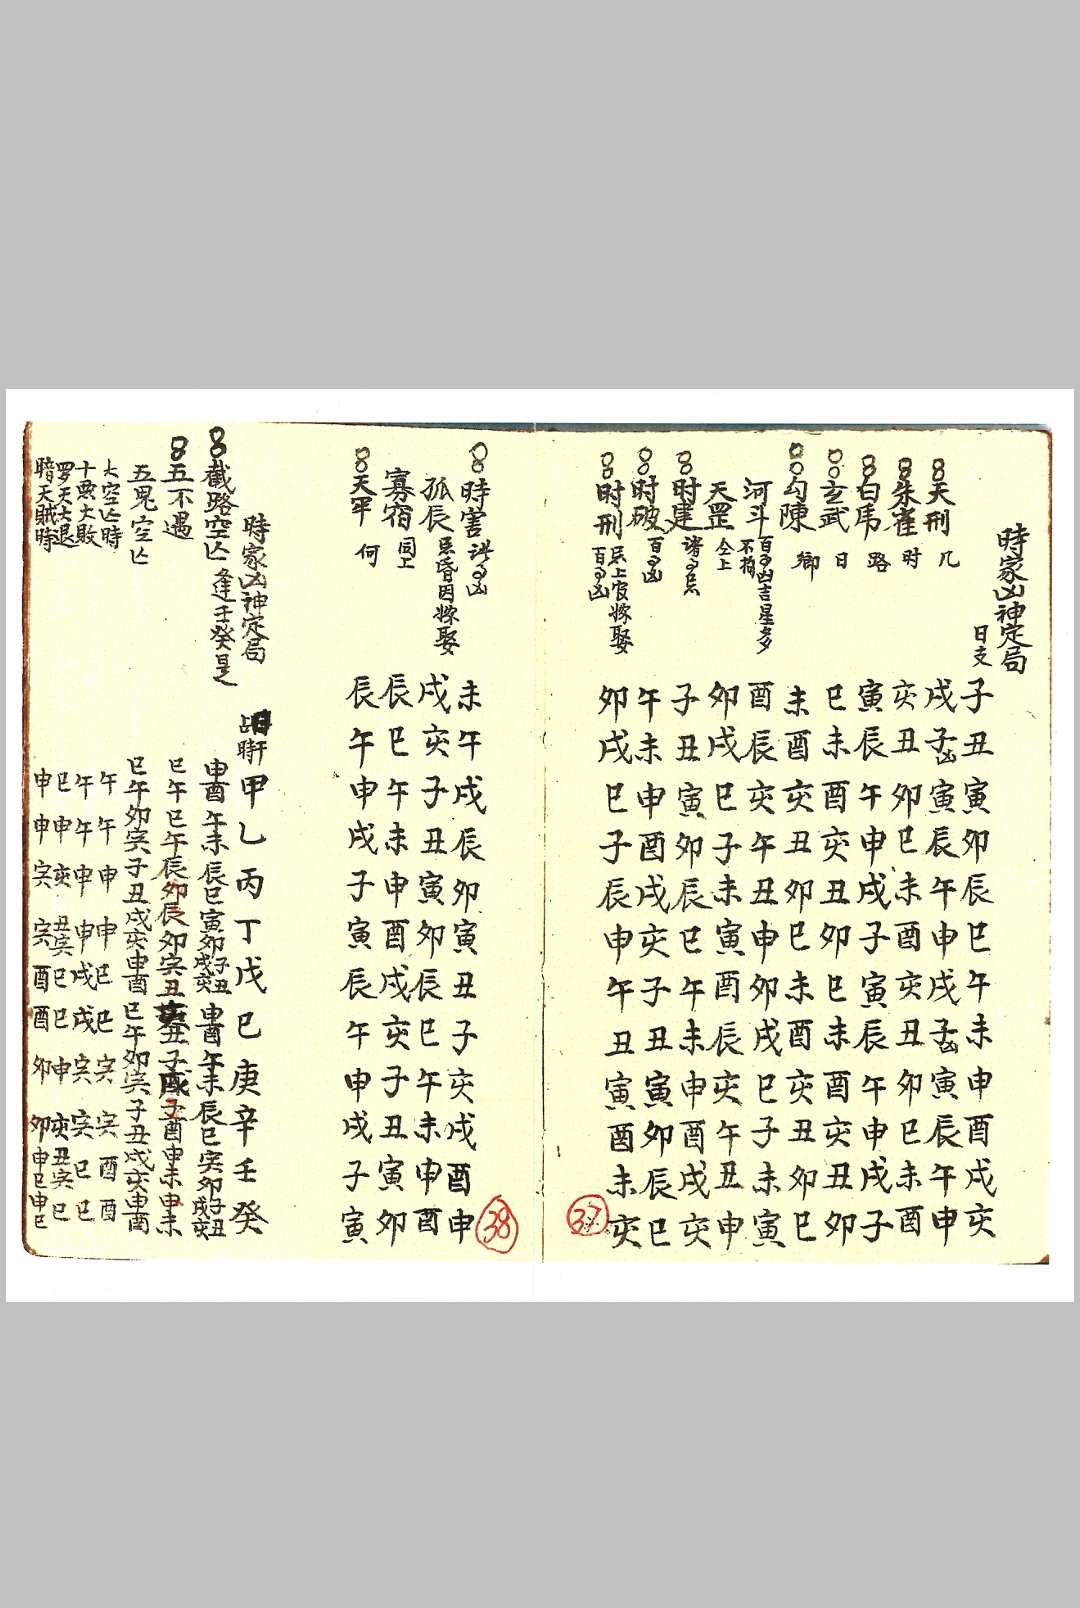 時家凶神定局
日支 子丑寅卯辰巳午未申酉戌亥
天刑 凡 戌子凶寅辰午申戌子凶寅辰午申
朱雀 时 亥丑卯巳未酉亥丑卯巳未酉
白虎 路 寅辰午申戌子寅辰午申戌子
玄武 日 巳未酉亥丑卯巳未酉亥丑卯
勾陳 鄉 未酉亥丑卯巳未酉亥丑卯巳
河斗 百事凶吉星多不拘 酉辰亥午丑申卯戌巳子未寅
天罡 仝上 卯戌巳子未寅酉辰亥午丑申
时建 諸事忌 子丑寅卯辰巳午未申酉戌亥
时破 百事凶 午未申酉戌亥子丑寅卯辰巳
时刑 忌上官嫁娶 百事凶 卯戌巳子辰申午丑寅酉未亥
37
時害 諸事凶 未午戌辰卯寅丑子亥戌酉申
孤辰 忌昏因嫁娶 戌亥子丑寅卯辰巳午未申酉
寡宿 同上 辰巳午未申酉戌亥子丑寅卯
天牢 何 辰午申戌子寅辰午申戌子寅
38
時家凶神定局
日干 占時 甲乙丙丁戊己庚辛壬癸
截路空亡 逢壬癸是 申酉午未辰巳寅卯戌亥子丑申酉午未辰巳寅卯戌亥子丑
五不遇 巳午巳午辰卯辰卯亥丑丑子戌子酉申未申未
五鬼空亡 巳午卯亥子丑戌亥申酉巳午卯亥子丑戌亥申酉
大空亡時 午午申申巳巳亥亥酉酉
十悪大敗 午午申申戌戌亥亥巳巳
罗天大退 巳申亥丑亥巳巳申亥丑亥巳
暗天賊時 申申亥亥酉酉卯卯申巳申巳